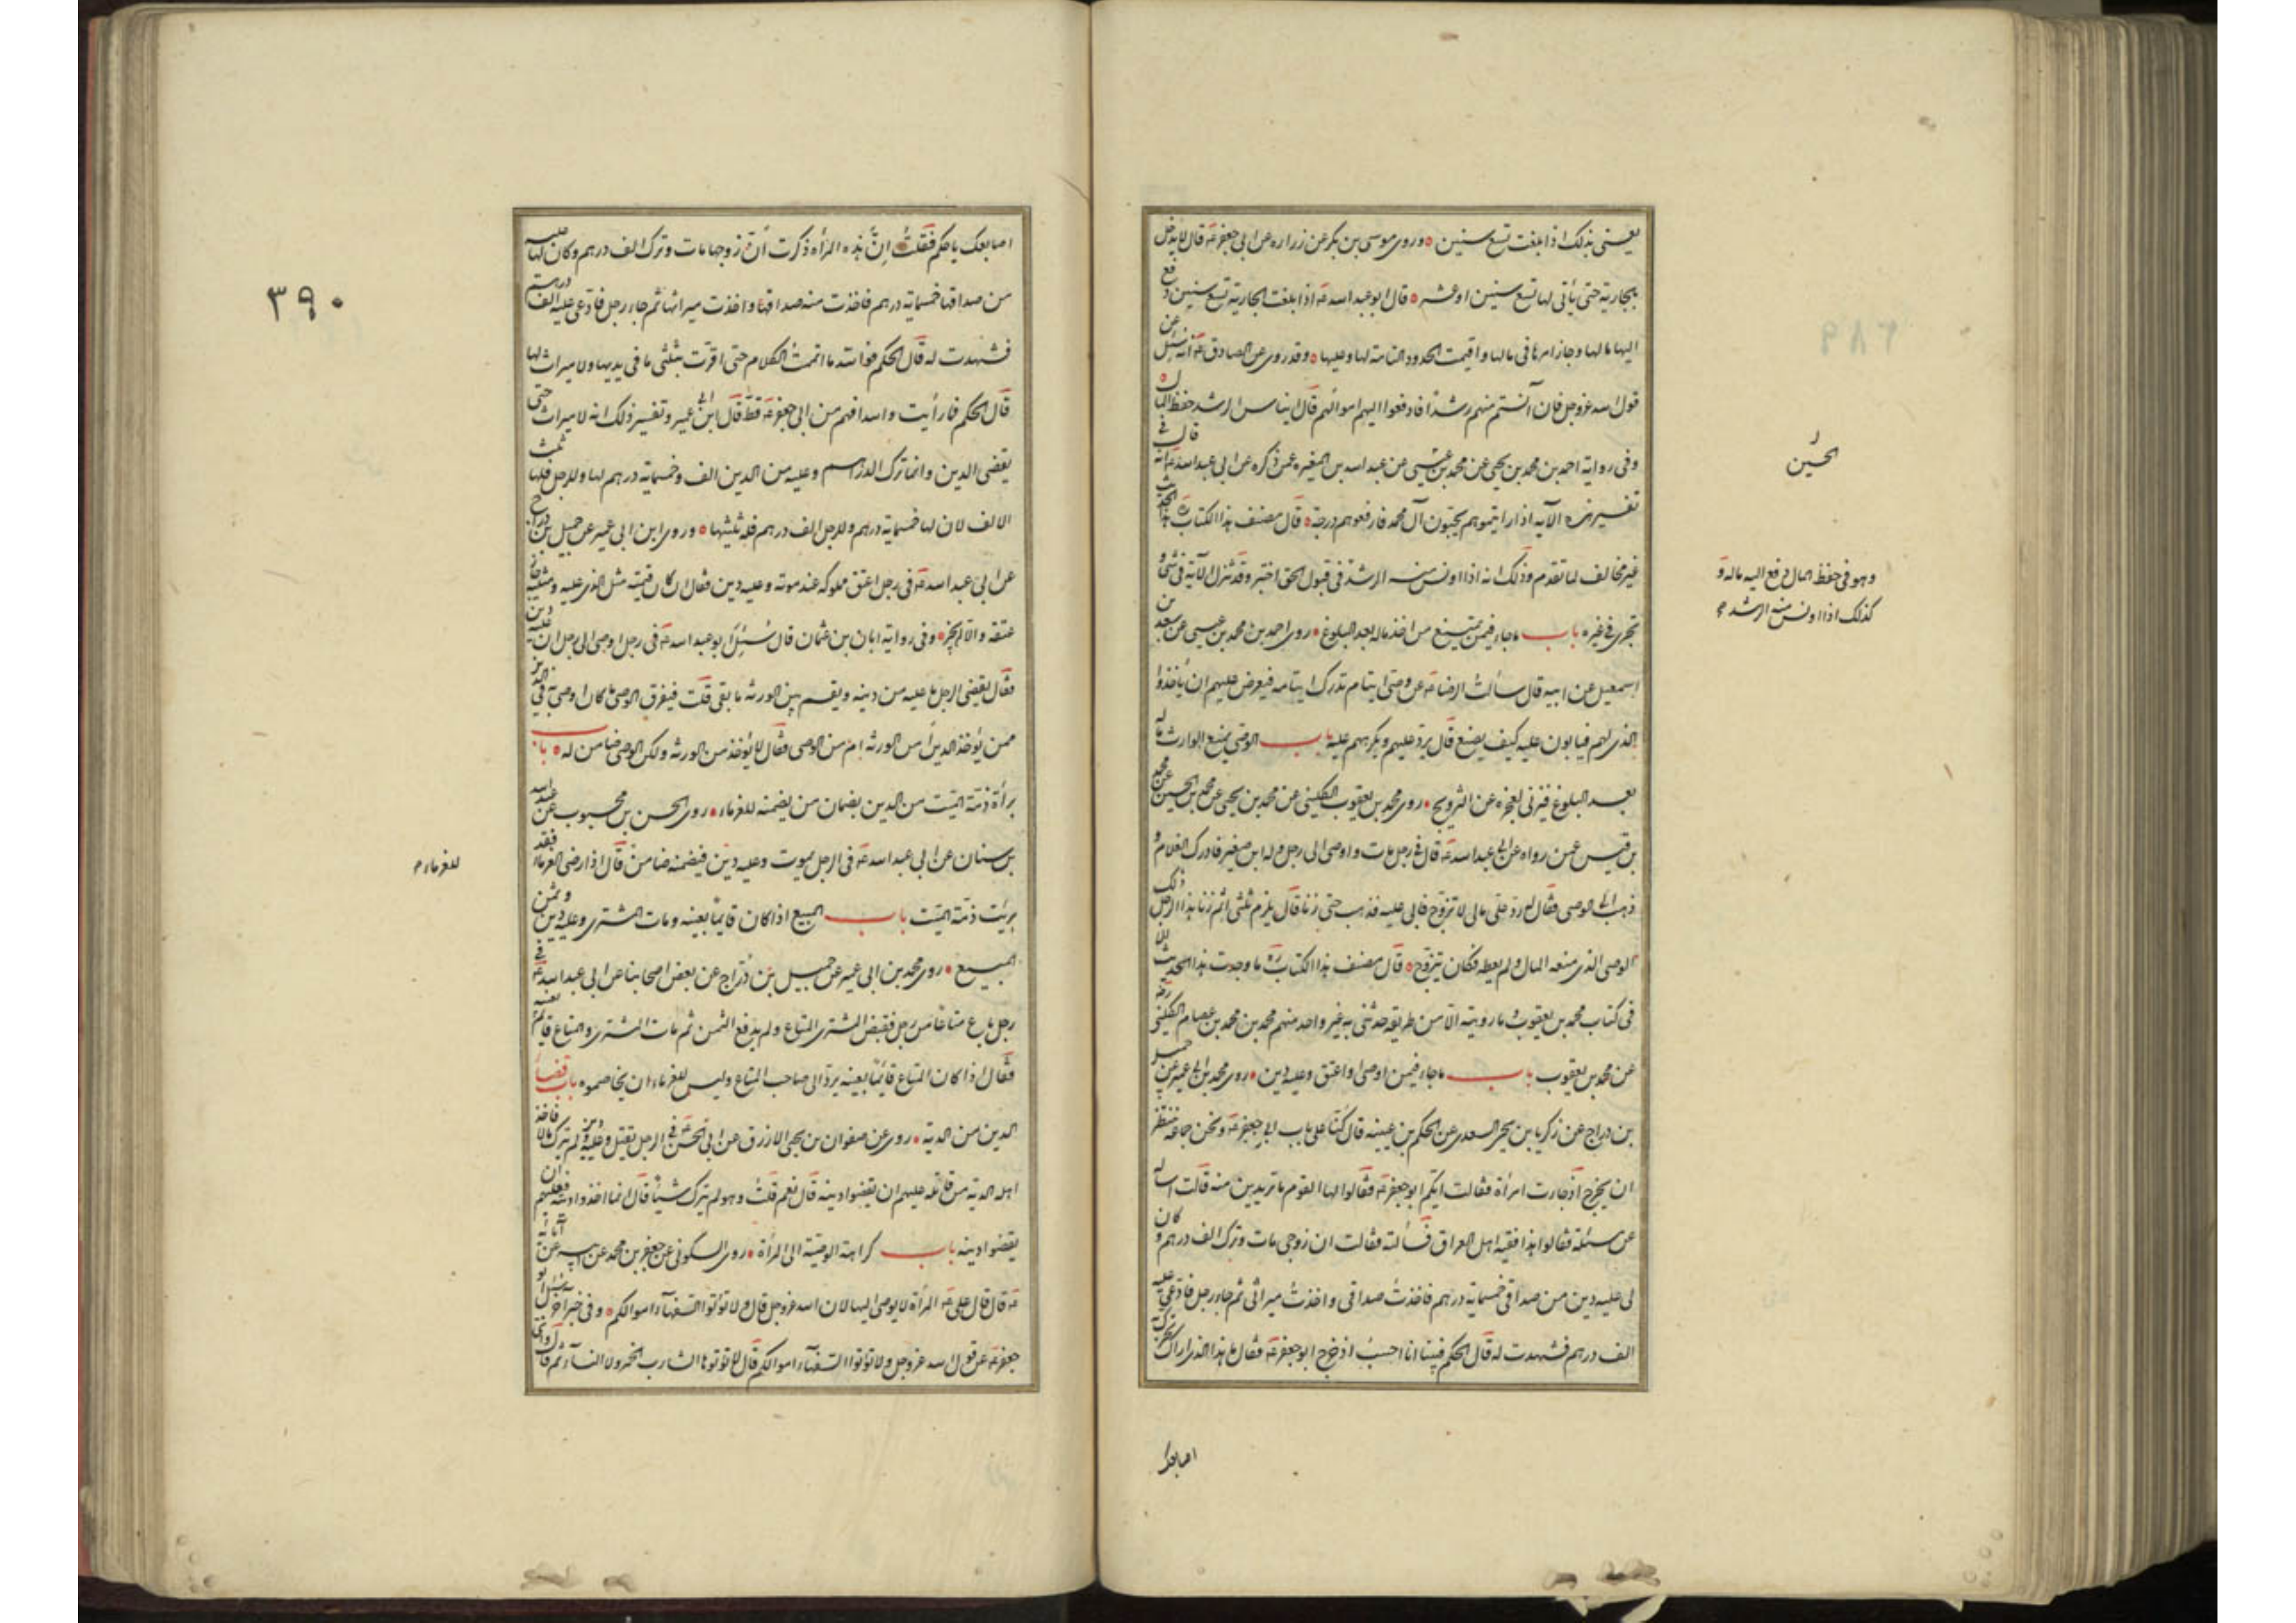 يعنى بذلك اذا بلغت تسع سنين وروى موسى بن بكر عن زرارة عن ابى جعفر ع قال لا يدخل
بالجارية حتى يأتى لها تسع سنين او عشر قال ابو عبد الله ع اذا بلغت الجارية تسع سنين دفع
اليها مالها وجاز امرها فى مالها واقيمت الحدود التامة لها وعليها وقد روى عن الصادق ع انه سئل عن
قول الله عز وجل فان آنستم منهم رشدا فادفعوا اليهم اموالهم قال ايناس الرشد حفظ المال
وفى رواية احمد بن محمد بن يحيى عن محمد بن عيسى عن عبد الله بن المغيرة عمن ذكره عن ابى عبد الله ع انه قال فى
تفسير هذه الآية اذا رايتموهم يحبون آل محمد فارفعوهم درجة قال مصنف هذا الكتاب ره هذا الحديث
غير مخالف لما تقدم وذلك انه اذا اونس منه الرشد فى قبول الحق اختبر وقد تنزل الآية فى شئ و
تجرى فى غيره باب ما جاء فيمن يمتنع من اخذ ماله بعد البلوغ روى احمد بن محمد بن عيسى عن سعد بن
اسمعيل عن ابيه قال سألت الرضا ع عن وصى ايتام تدرك ايتامه فيعرض عليهم ان يأخذوا
الذى لهم فيأبون عليه كيف يصنع قال يرد عليهم ويكرههم عليه باب الوصى يمنع الوارث ماله
بعد البلوغ فيزنى لعجزه عن التزويج روى محمد بن يعقوب الكلينى عن محمد بن يحيى عن محمد بن الحسين عن محمد
بن قيس عمن رواه عن ابى عبد الله ع قال فى رجل مات واوصى الى رجل وله ابن صغير فادرك الغلام و
ذهب الى الوصى فقال له رد على مالى لاتزوج فابى عليه فذهب حتى زنا قال يلزم ثلثى اثم زنا هذا الرجل ذلك
الوصى الذى منعه المال ولم يعطه فكان يتزوج قال مصنف هذا الكتاب ره ما وجدت هذا الحديث الا
فى كتاب محمد بن يعقوب وما رويته الا من طريقه حدثنى به غير واحد منهم محمد بن محمد بن عصام الكلينى رضه
عن محمد بن يعقوب باب ما جاء فيمن اوصى او اعتق وعليه دين روى محمد بن ابى عمير عن جميل
بن دراج عن زكريا بن يحيى السعدى عن الحكم بن عيينه قال كنا على باب ابى جعفر ع ونحن جماعة ننتظر
ان يخرج اذ جاءت امرأة فقالت ايكم ابو جعفر ع فقالوا لها القوم ما تريدين منه قالت اساله
عن مسئلة فقالوا هذا فقيه اهل العراق فسألته فقالت ان زوجى مات وترك الف درهم و كان
لى عليه دين من صداقى خمسماية درهم فاخذت صداقى واخذت ميراثى ثم جاء رجل فادعى عليه
الف درهم فشهدت له قال الحكم فبينا انا احسب اذ خرج ابو جعفر ع فقال ما هذا الذى اراك تحرك به
اصابعك
الحسين
وهو فى حفظ المال دفع اليه ماله و
كذلك اذا اونس منه الرشد
٣٩٠
اصابعك يا حكم فقلت ان هذه المرأة ذكرت ان زوجها مات وترك الف درهم وكان لها عليه
من صداقها خمسماية درهم فاخذت منه صداقها واخذت ميراثها ثم جاء رجل فادعى عليه الف درهم
فشهدت له قال الحكم فوالله ما اتممت الكلام حتى اقرت بثلثى ما فى يديها ولا ميراث لها
قال الحكم فما رأيت والله افهم من ابى جعفر ع قط قال ابن ابى عمير وتفسير ذلك انه لا ميراث حتى
يقضى الدين وانما ترك الف درهم وعليه من الدين الف وخمسماية درهم لها وللرجل فلها ثلث
الالف لان لها خمسماية درهم وللرجل الف درهم فله ثلثيها وروى ابن ابى عمير عن جميل بن دراج
عن ابى عبد الله ع فى رجل اعتق مملوكه عند موته وعليه دين فقال ان كان قيمته مثل الذى عليه ومثليه جاز
عتقه والا لم يجز وفى رواية ابان بن عثمان قال سئل ابو عبد الله ع فى رجل اوصى الى رجل ان عليه دين
فقال يقضى الرجل ما عليه من دينه ويقسم بين الورثه ما بقى قلت فيفرق الوصى ما كان اوصى به فى الدين
ممن يؤخذ الدين أمن الورثه ام من الوصى فقال لا يؤخذ من الورثه ولكن الوصى ضامن له باب
برأة ذمة الميت من الدين بضمان من يضمنه للغرماء روى الحسن بن محبوب عن عبد الله
بن سنان عن ابى عبد الله ع فى الرجل يموت وعليه دين فيضمنه ضامن قال اذا رضى الغرماء فقد
برئت ذمة الميت باب المبيع اذا كان قايما بعينه ومات المشترى وعليه دين وثمن
المبيع روى محمد بن ابى عمير عن جميل بن دراج عن بعض اصحابنا عن ابى عبد الله ع فى
رجل باع متاعا من رجل فقبض المشترى المتاع ولم يدفع الثمن ثم مات المشترى والمتاع قايم بعينه
فقال اذا كان المتاع قائما بعينه يرد الى صاحب المتاع وليس للغرماء ان يخاصموه باب قضاء
الدين من الدية روى عن صفوان بن يحيى الازرق عن ابى الحسن ع فى الرجل يقتل وعليه دين ولم يترك مالا فاخذ
اهله الدية من قاتله عليهم ان يقضوا دينه قال نعم قلت وهو لم يترك شيئا قال انما اخذوا ديته فعليهم ان
يقضوا دينه باب كراهة الوصية الى المرأة روى السكونى عن جعفر بن محمد عن ابيه عن آبائه
ع قال قال على ع المرأة لا يوصى اليها لان الله عز وجل قال ولا تؤتوا السفهاء اموالكم وفى خبر آخر سئل ابو
جعفر ع عن قول الله عز وجل ولا تؤتوا السفهاء اموالكم قال لا تؤتوها الشارب الخمر ولا النساء ثم قال واى
للغرماء